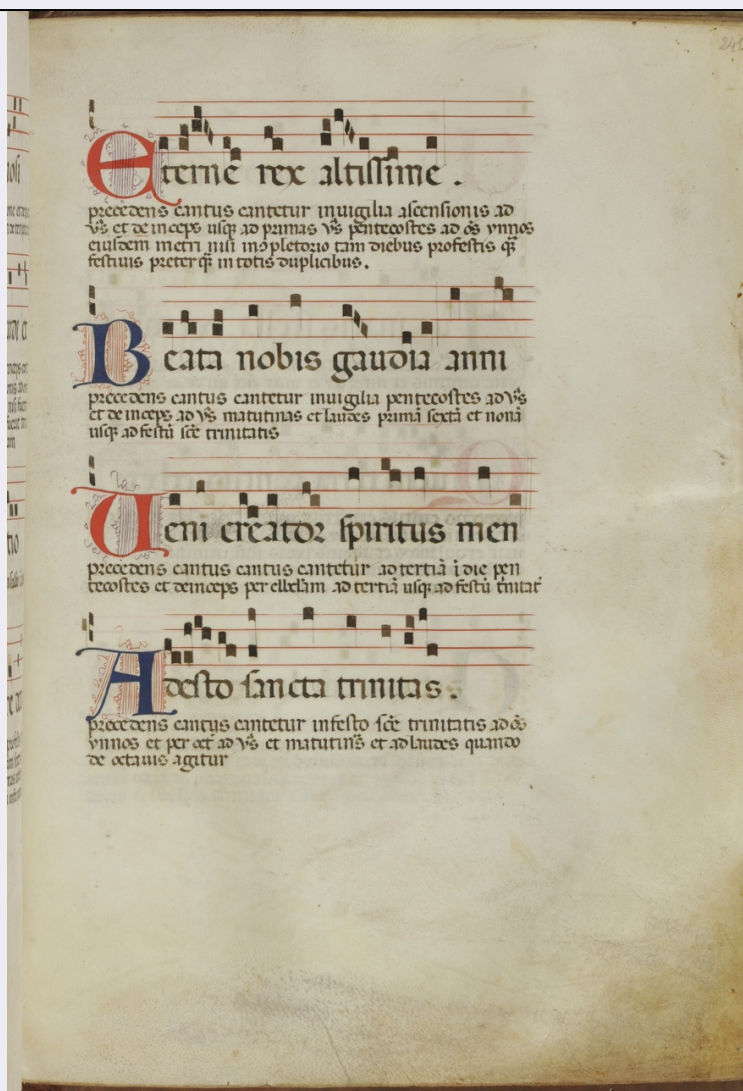 Eterne rex altissime.
precedens cantus cantetur inuigilia ascensionis ad
vs̄ et deinceps usq; ad primas vs̄ pentecostes ad oēs ynnos
eiusdem metri nisi incōpletorio tam diebus profestis q̄
festiuis preter q̄ in totis duplicibus.
Beata nobis gaudia anni
precedens cantus cantetur inuigilia pentecostes ad vs̄
et deinceps ad vs̄ matutinas et laudes primā sextā et nonā
usq; ad festū scē trinitatis
Ueni creator spiritus men
precedens cantus cantus cantetur ad tertiā ī die pen
tecostes et deinceps per ebdām ad tertiā usq; ad festū t̄nitat̄
Adesto sancta trinitas.
precedens cantus cantetur infesto scē trinitatis ad oēs
ynnos et per oct̄ ad vs̄ et matutinas et ad laudes quando
de octauis agitur